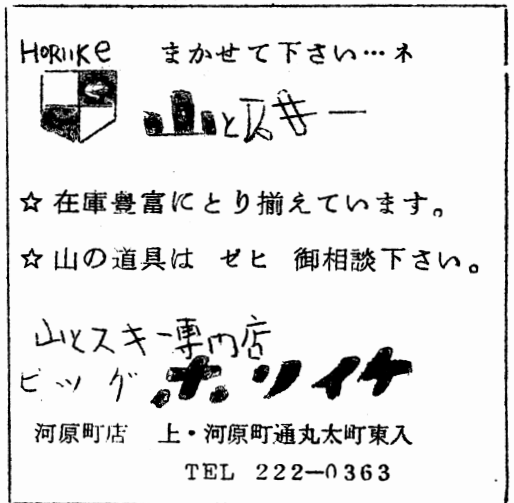 HORIIKE まかせて下さい…ネ
山とスキー
☆在庫豊富にとり揃えています。
☆山の道具は ゼヒ 御相談下さい。
山とスキー専門店
ビッグ ホリイケ
河原町店 上・河原町通丸太町東入
TEL 222—0363